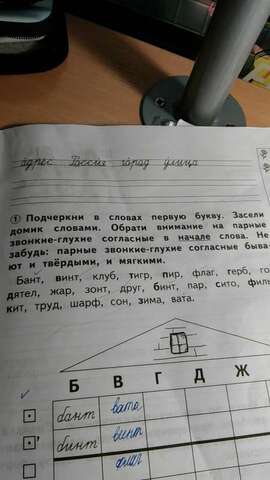 адрес Россия город улица
① Подчеркни в словах первую букву. Засели
домик словами. Обрати внимание на парные
звонкие-глухие согласные в начале слова. Не
забудь: парные звонкие-глухие согласные быва
ют и твёрдыми, и мягкими.
Бант, винт, клуб, тигр, пир, флаг, герб, го
дятел, жар, зонт, друг, бинт, пар, сито, фил
кит, труд, шарф, сон, зима, вата.
Б В Г Д Ж
бант вата
бинт винт
флаг